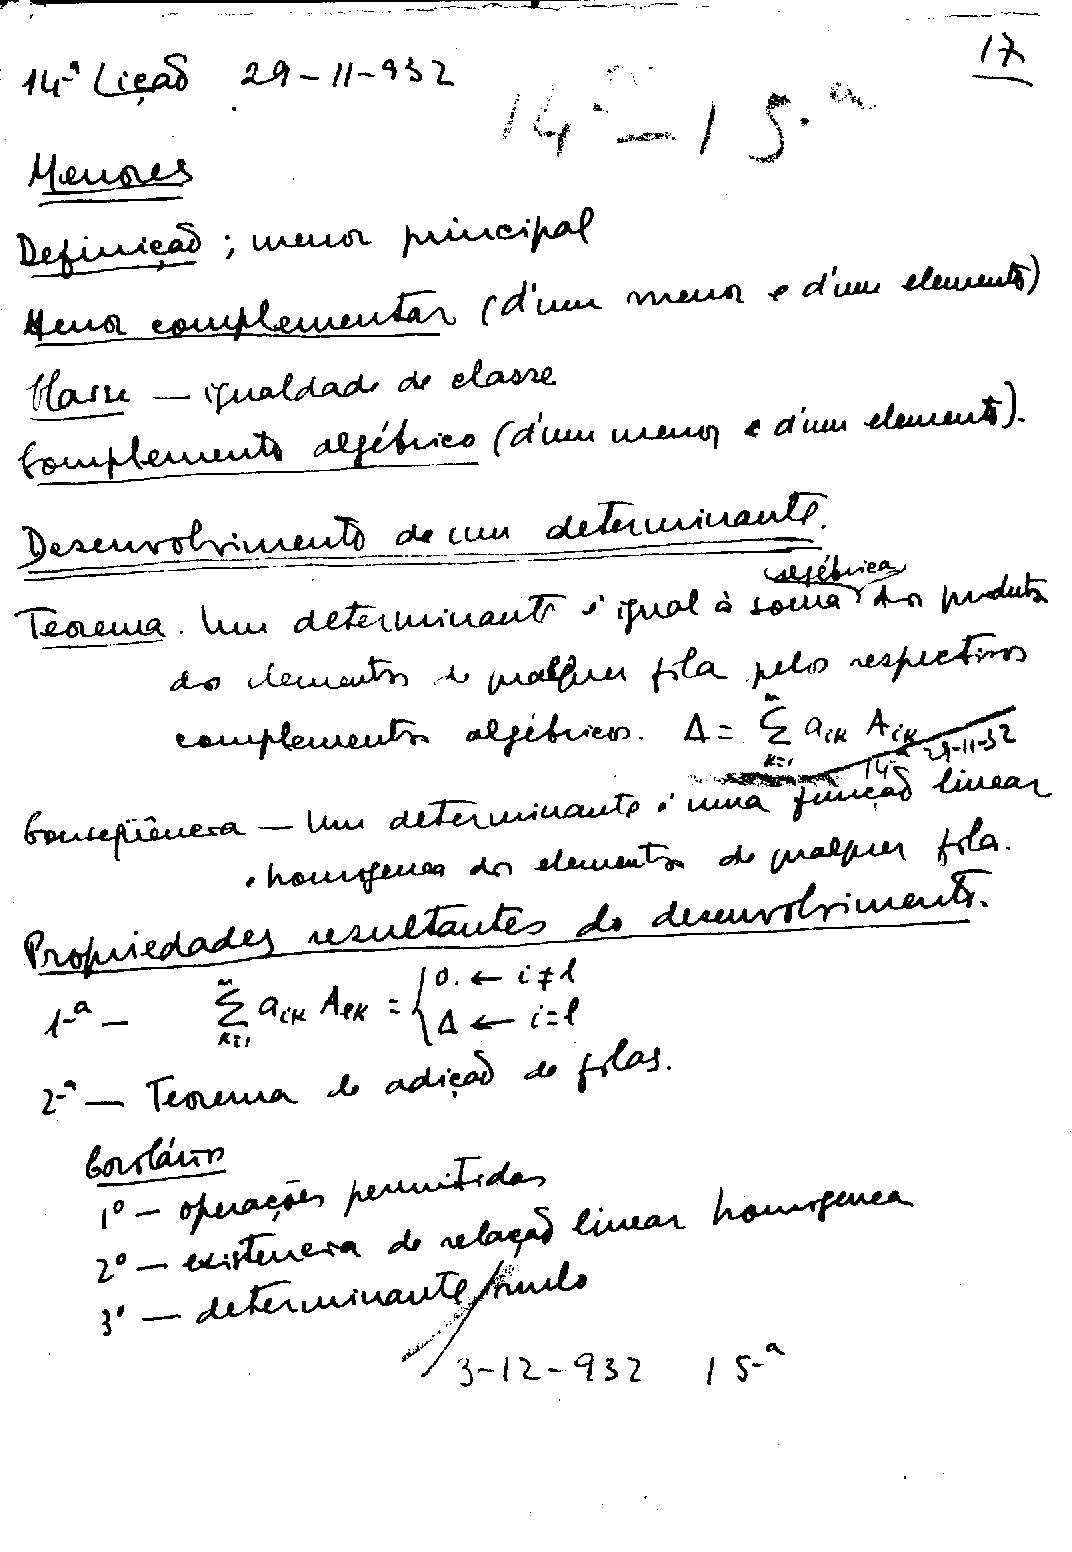 17
14.ª Lição 29-11-932
14.ª – 15.ª
Menores
Definição ; menor principal
Menor complementar (d'um menor e d'um elemento)
Classe — igualdade de classe
Complemento algébrico (d'um menor e d'um elemento).
Desenvolvimento de um determinante.
algébrica
Teorema. Um determinante é igual à soma dos produtos
dos elementos de qualquer fila pelos respectivos
complementos algébricos. Δ = Σ_{k=1}^{n} a_{ik} A_{ik}
14.ª 29-11-32
Conseqüência — Um determinante é uma função linear
e homogenea dos elementos de qualquer fila.
Propriedades resultantes do desenvolvimento.
1.ª — Σ_{k=1}^{n} a_{ik} A_{lk} = { 0. ← i ≠ l
Δ ← i = l
2.ª — Teorema de adição de filas.
Corolários
1º — operações permitidas
2º — existencia de relação linear homogenea
3º — determinante nulo
3-12-932 15.ª